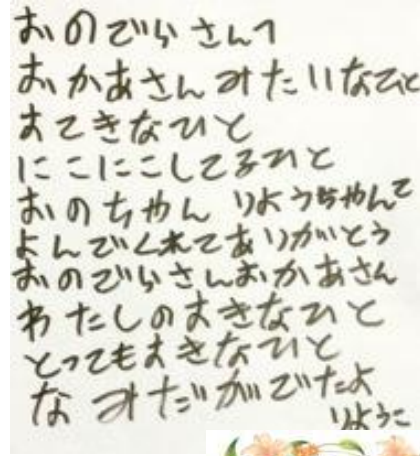 おのでらさんへ
おかあさんみたいなひと
すてきなひと
にこにこしてるひと
おのちゃん りようちゃんて
よんでくれてありがとう
おのでらさんおかあさん
わたしのすきなひと
とってもすきなひと
なみだがでたよ
りようこ